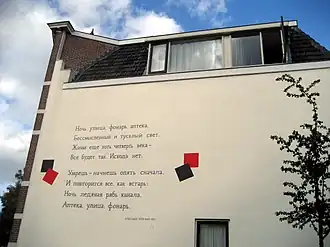 Ночь, улица, фонарь, аптека,
Бессмысленный и тусклый свет.
Живи еще хоть четверть века -
Все будет так. Исхода нет.
Умрешь - начнешь опять сначала,
И повторится все, как встарь:
Ночь, ледяная рябь канала,
Аптека, улица, фонарь.